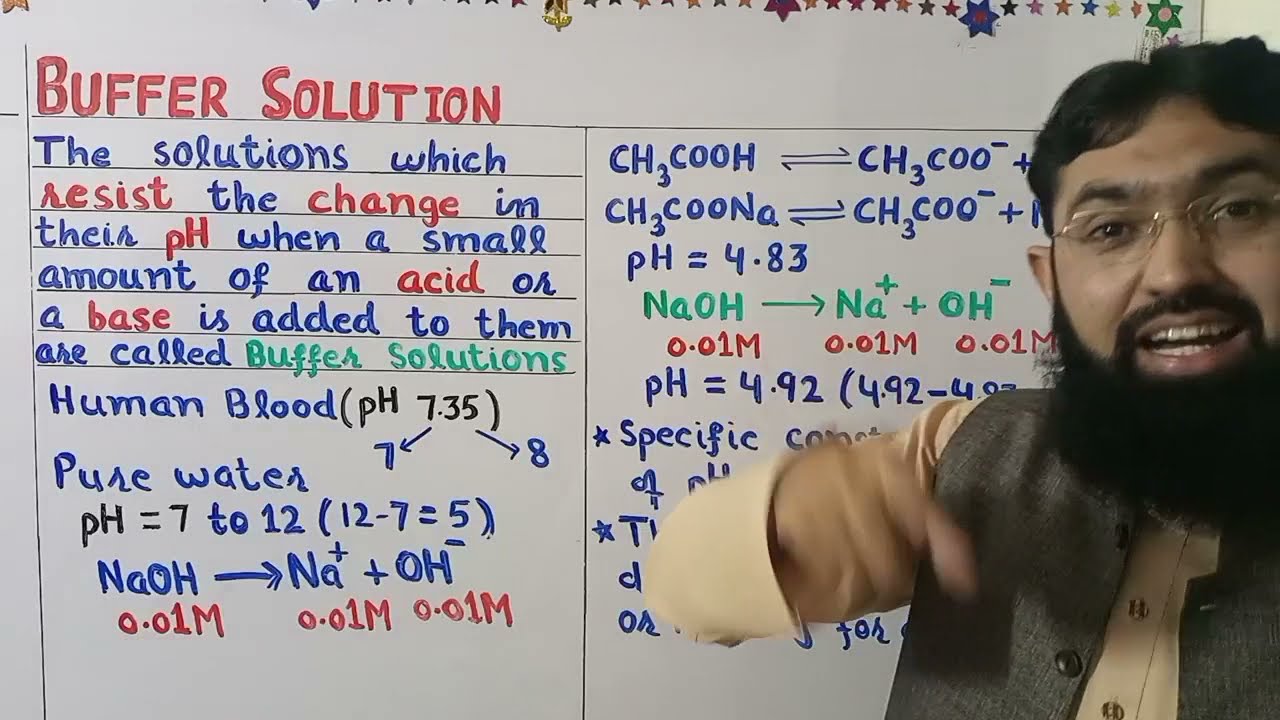 BUFFER SOLUTION
The solutions which
resist the change in
their pH when a small
amount of an acid or
a base is added to them
are called Buffer Solutions
Human Blood (pH 7.35)
7 8
Pure water
pH = 7 to 12 (12-7 = 5)
NaOH ⟶ Na⁺ + OH⁻
0.01M 0.01M 0.01M
CH₃COOH ⇌ CH₃COO⁻ +
CH₃COONa ⇌ CH₃COO⁻ +
pH = 4.83
NaOH ⟶ Na⁺ + OH⁻
0.01M 0.01M 0.01M
pH = 4.92 (4.92-4.
* Specific
of pH
*
or for